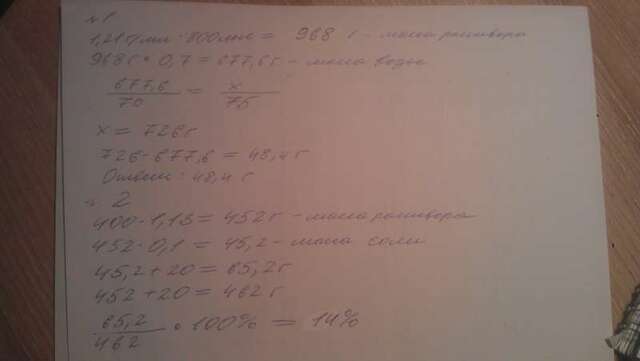 №1
1,21 г/мл · 800 мл = 968 г - масса раствора
968 г · 0,7 = 677,6 г - масса воды
677,6/70 = x/75
x = 726 г
726 - 677,6 = 48,4 г
Ответ: 48,4 г
№ 2
400 · 1,13 = 452 г - масса раствора
452 · 0,1 = 45,2 - масса соли
45,2 + 20 = 65,2 г
452 + 20 = 462 г
65,2/462 · 100% = 14%